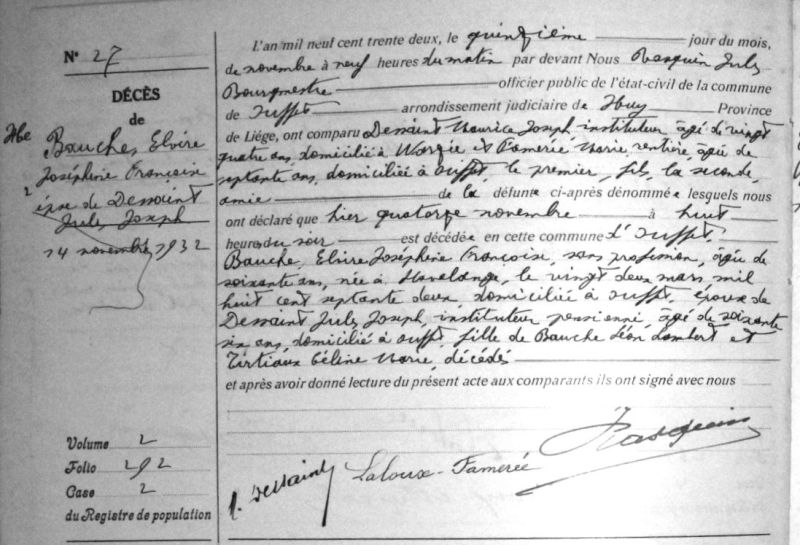 N° 27
DÉCÈS
de
Bauche, Elvire
Joséphine Françoise
épse de Dessaint
Jules Joseph
14 novembre 1932
Volume 2
Folio 292
Case 2
du Registre de population
L'an mil neuf cent trente deux, le quinzième jour du mois,
de novembre à neuf heures du matin par devant Nous Rasquin Jules
Bourgmestre officier public de l'état-civil de la commune
de Ouffet arrondissement judiciaire de Huy Province
de Liége, ont comparu Dessaint Maurice Joseph instituteur âgé de vingt
quatre ans, domicilié à et Famerée Marie, rentière, âgée de
septante ans, domiciliée à Ouffet, le premier, fils, la seconde,
amie de la défunte ci-après dénommée lesquels nous
ont déclaré que hier quatorze novembre à huit
heures du soir est décédée en cette commune d'Ouffet,
Bauche, Elvire Joséphine Françoise, sans profession, âgée de
soixante ans, née à Havelange, le vingt deux mars mil
huit cent septante deux, domiciliée à Ouffet, épouse de
Dessaint Jules Joseph, instituteur pensionné, âgé de soixante
six ans, domicilié à Ouffet, fille de Bauche Léon Lambert et
Tirtiaux Céline Marie, décédés
et après avoir donné lecture du présent acte aux comparants ils ont signé avec nous
Dessaint
Laloux-Famerée
Rasquin